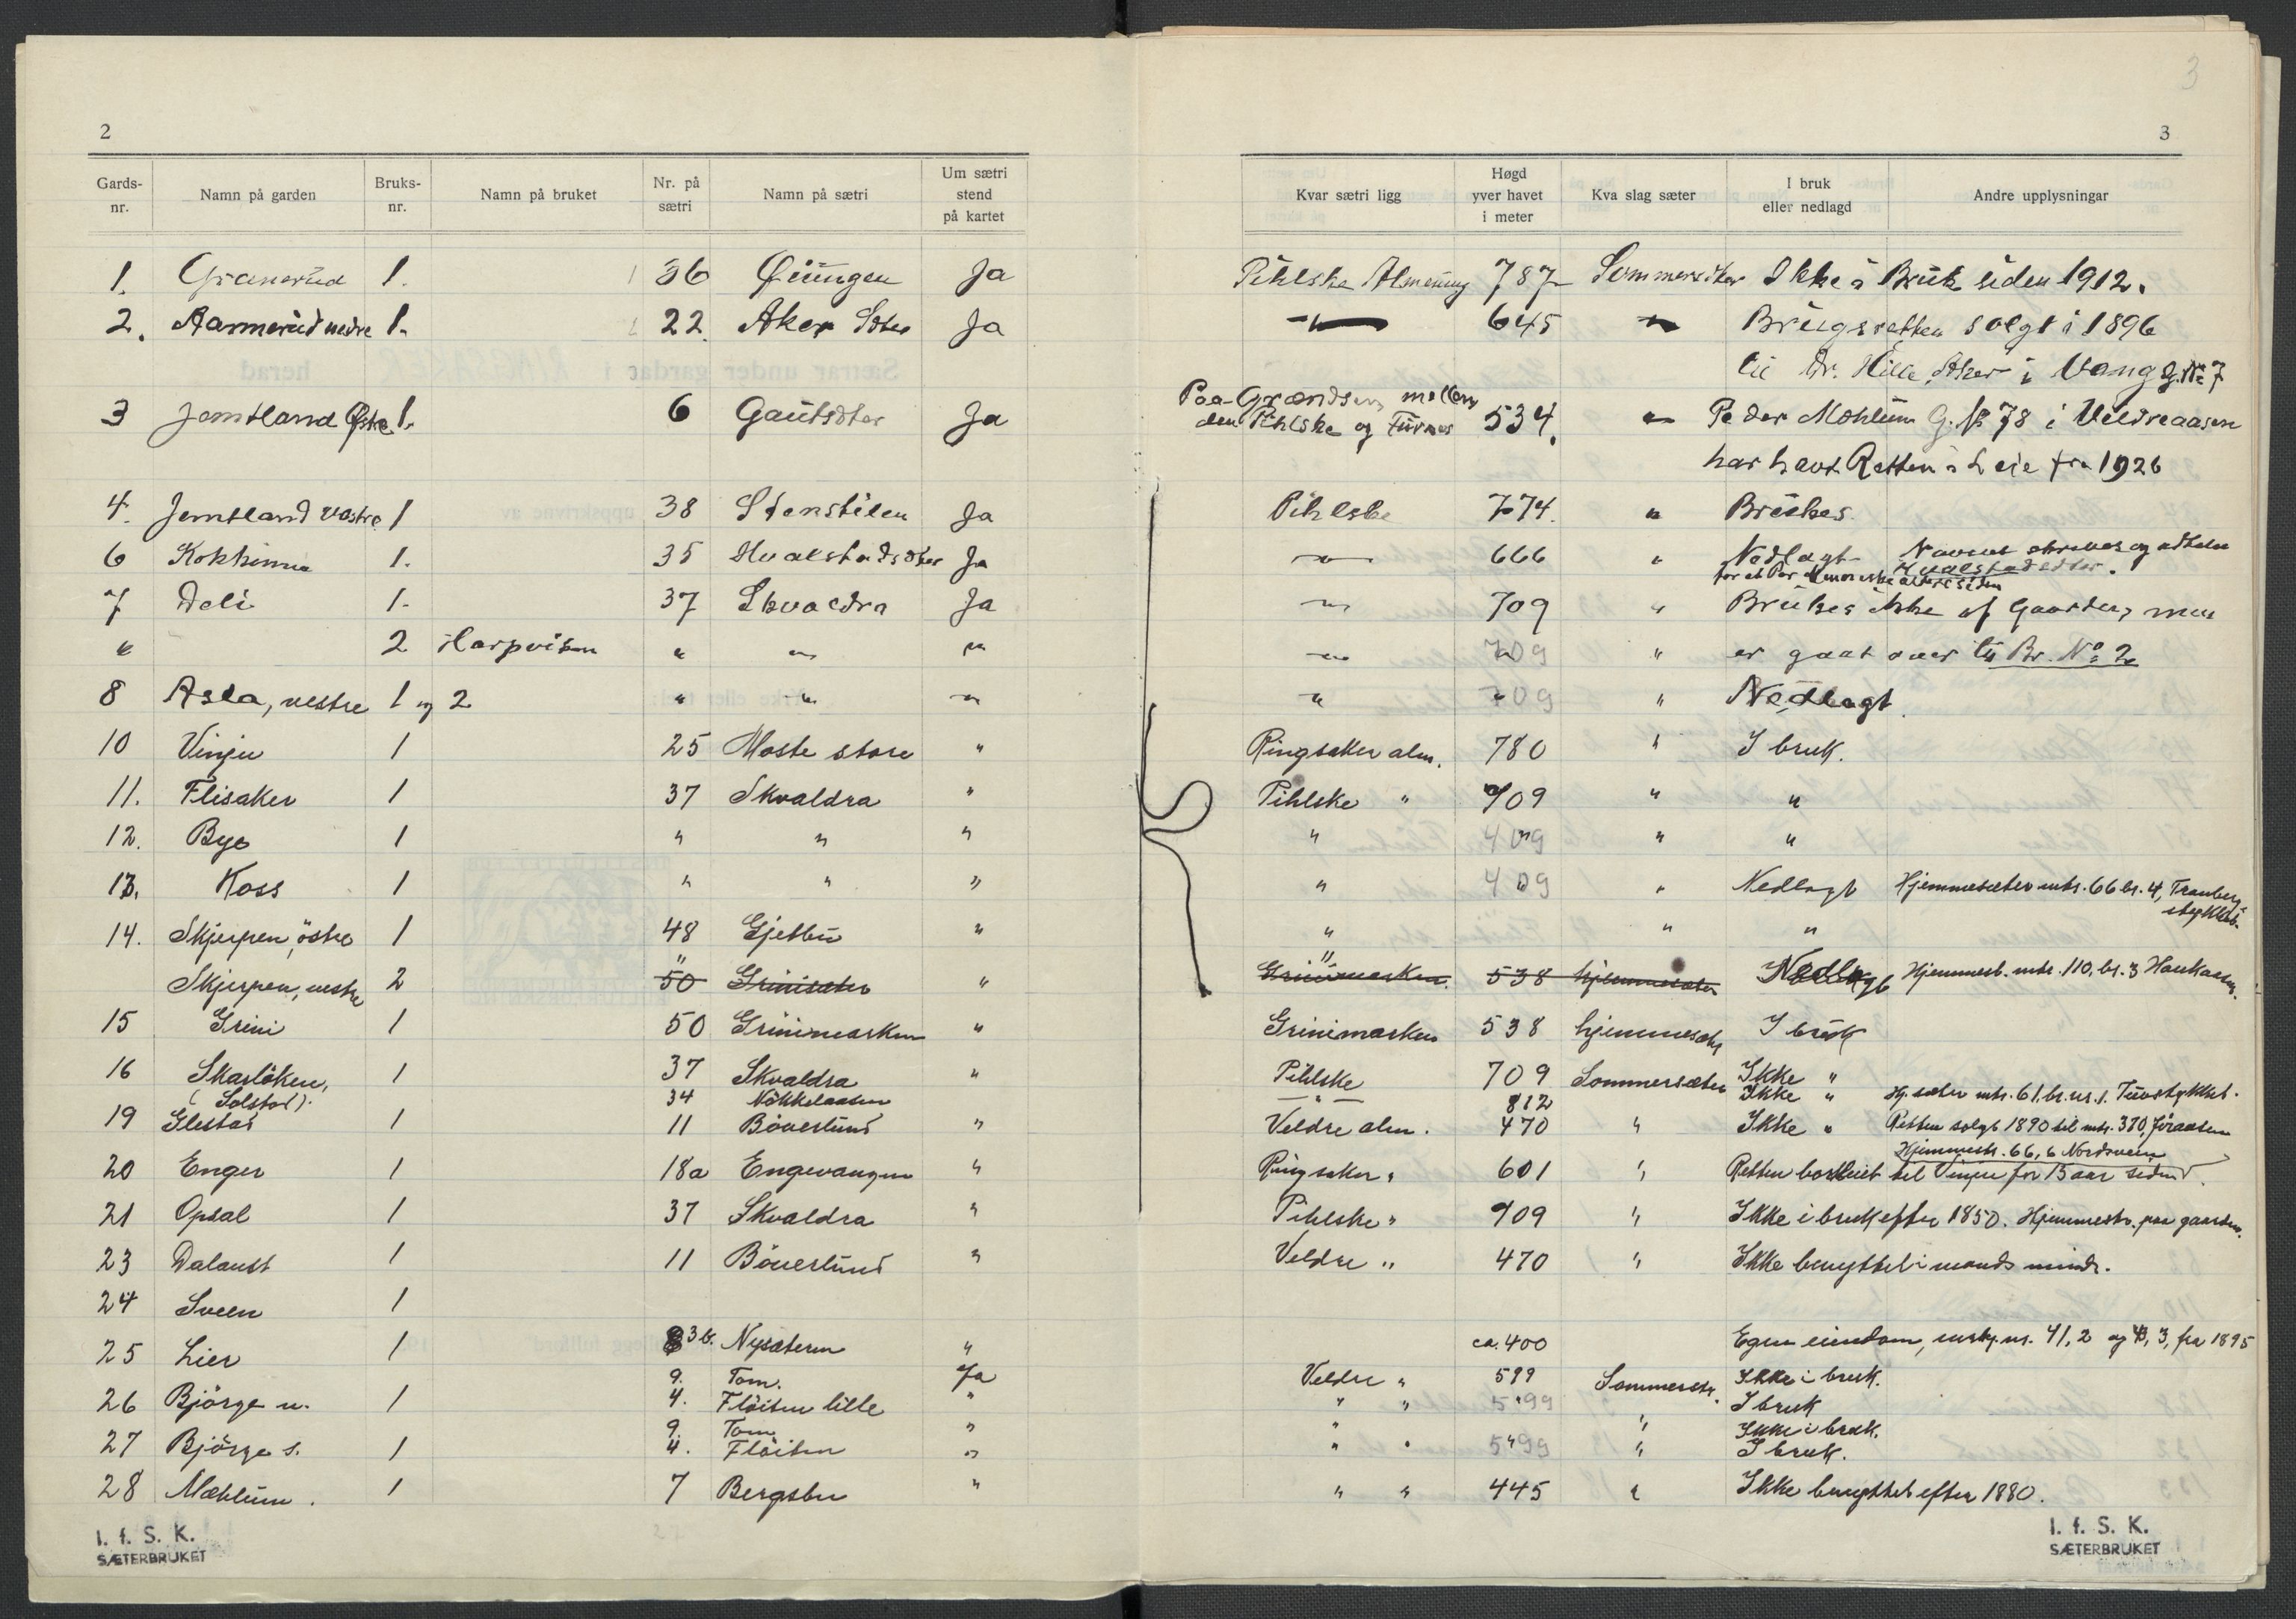 2
Gards-nr. Namn på garden Bruks-nr. Namn på bruket Nr. på sætri Namn på sætri Um sætri stend på kartet
1. Granerud 1. 36 Øiungen Ja
2. Aarmerud nedre 1. 22. Aker Sæter Ja
3 Jemtland Østre 1. 6 Gautsæter Ja
4. Jemtland vestre 1 38 Stenstilen Ja
6 Kokhimu 1. 35 Hvalstadsæter Ja
7 Deli 1. 37 Skvaldra Ja
" 2 Harpviken " " "
8 Asla, vestre 1 og 2 " " "
10 Vinju 1 25 Moste store "
11. Flisaker 1 37 Skvaldra "
12. Bye 1 " " "
13. Koss 1 " " "
14. Skjerpen, östre 1 48 Gjetbu "
Skjerpen, vestre 2 " 50 Grinisæter "
15 Grini 1 50 Grinimarken "
16 Skarlöken, 1 37 Skvaldra "
(Solstad). 34 Nökkelaasen
19 Glestad 1 11 Böverlund "
20 Enger 1 18a Engevangen "
21 Opsal 1 37 Skvaldra "
23 Dalaust 1 11 Böverlund "
24 Sveen 1
25 Lier 1 3b. Nysæteren "
9. Tom. Ja
26 Björge n. 1 4. Flöiten lille "
9. Tom "
27 Björge s. 1 4. Flöiten "
28 Mæhlum. 1 7 Bergsbu "
I. f. S. K.
SÆTERBRUKET
3
3
Kvar sætri ligg Høgd yver havet i meter Kva slag sæter I bruk eller nedlagd Andre upplysningar
Pihlske Almening 787 Sommersæter Ikke i Bruk siden 1912.
" 645 " Brugsretten solgt i 1896
til Aker i Vang g. № 7
Paa Grændsen mellem
den Pihlske og Furnes 534. " Peder Mæhlum G. № 78 i Veldreaasen
har havt Retten i Leie fra 1926
Pihlske 774. " Brukes
" 666 " Nedlagt Navnet skrives og udtales
Hvalstadsæter.
for et Par Menneskealdre siden
" 709 " Brukes ikke af Gaarden, men
" 709 " er gaat over til Br. No 2
" 709 " Nedlagt.
Ringsaker alm. 780 " I bruk.
Pihlske " 709 " "
" 409 " "
" 409 " Nedlagt Hjemmesæter mtr. 66 br. 4, Tranberg-
stykket.
" " "
" Grinimarken. 538 hjemmesæter Nedlagt Hjemmest. mtr. 110, br. 3 Haukaasen.
Grinimarken 538 hjemmesæter I bruk
Pihlske 709 Sommersæter Ikke "
" 812 Ikke " Hj. sæter mtr. 61. br. nr. 1. Tuvstykket.
Veldre alm. 470 " Ikke " Retten solgt 1890 til mtr. 370, Jøraasen
Hjemmestr. 66, 6 Nordsveen
Ringsaker " 601 " Retten bortleiet til Vinju for 15 aar siden.
Pihlske " 709 " Ikke i bruk efter 1850. Hjemmestr. paa gaarden.
Veldre " 470 " Ikke benyttet i mands minde.
ca. 400 Egen eiendom, 41, 2 og 43, 3, fra 1895
Veldre " 599 Sommersetr. Ikke i bruk.
" " 599 I bruk
" " Ikke i bruk.
" " 599 " I bruk.
" " 445 " Ikke benyttet efter 1880.
I. f. S. K.
SÆTERBRUKET